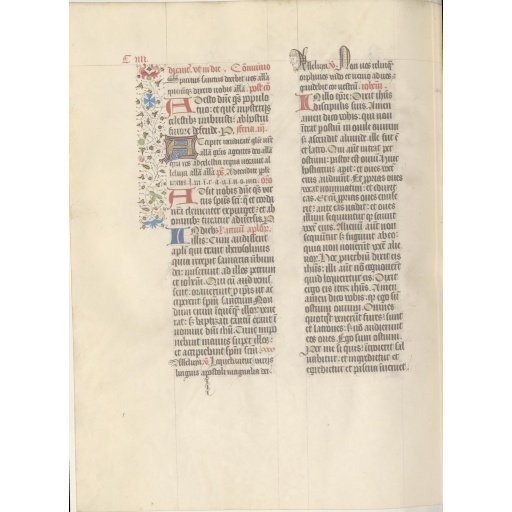 C IIII
dicant. ut in die. Co͞mmunio
spiritus sanctus docebit vos alla
quecu͞q; dixero vobis alla. post co͞
Adesto d͞ne q͞s populo
tuo: et que͞ mysteriis
celestib; imbuisti: ab hostiu͞
furore defende. P. feria iij.
Accipite iocunditate͞ glorie
alleluia alla alla. ps. Attendite pple
Adsit nobis d͞ne q͞s vir
tus sp͞us s͞ci: q͞ et corda
n͞ra clementer expurget: et ab
omnibus tueatur adversis. P.
In dieb; Lectio actuu͞ aplor͞.
illis: Cum audissent
apli qui erant iherosolimis
quia recepit samaria v͞bum
dei: miserunt ad illos petrum
et ioh͞em. Qui cu͞ venis
sent: oraverunt p ipsis ut ac
ciperent sp͞m sanctum. Non
dum enim in que͞q; illor͞ vene
rat: s; baptizati tantu͞ erant i͞
nomine d͞ni ih͞u. Tunc impo
nebant manus super illos:
et accipiebant sp͞m sc͞m.
Alleluia. v͞. Loquebantur variis
linguis apostoli magnalia dei.
Alleluia. v͞. Non vos relinqua͞
orphanos vado et venio ad vos: et
gaudebit cor vestru͞. ioh͞em.
In illo tp͞re: Dixit ih͞us
discipulis suis. Amen
amen dico vobis: qui non
intrat per ostiu͞ in ovile ovium
s; ascendit aliunde: ille fur e͞
et latro. Qui aut͞ intrat per
ostium: pastor est oviu͞. Huic
hostiarius apit: et oves voce͞
eius audiunt. Et pprias oves
vocat nominatim: et educit
eas. Et cu͞ pprias oves emise
rit: ante eas vadit: et oves
illum sequuntur q͞ sciunt
voce͞ eius. Alienu͞ aut͞ non
sequu͞tur s; fugiunt ab eo:
quia non noveru͞t voce͞ alie
nor͞. Hoc pverbiu͞ dixit eis
ih͞us: illi aut͞ no͞ cognoveru͞t
quid loqueretur eis. Dixit
ergo eis iteru͞ ih͞us. Amen
amen dico vobis: q͞ ego su͞
ostium ovium. Omnes
quotq͞t venerunt fures: sunt
et latrones: s; no͞ audierunt
eos oves. Ego sum ostium.
Per me si quis introierit sal
vabitur: et ingredietur et
egredietur et pascua inveniet.